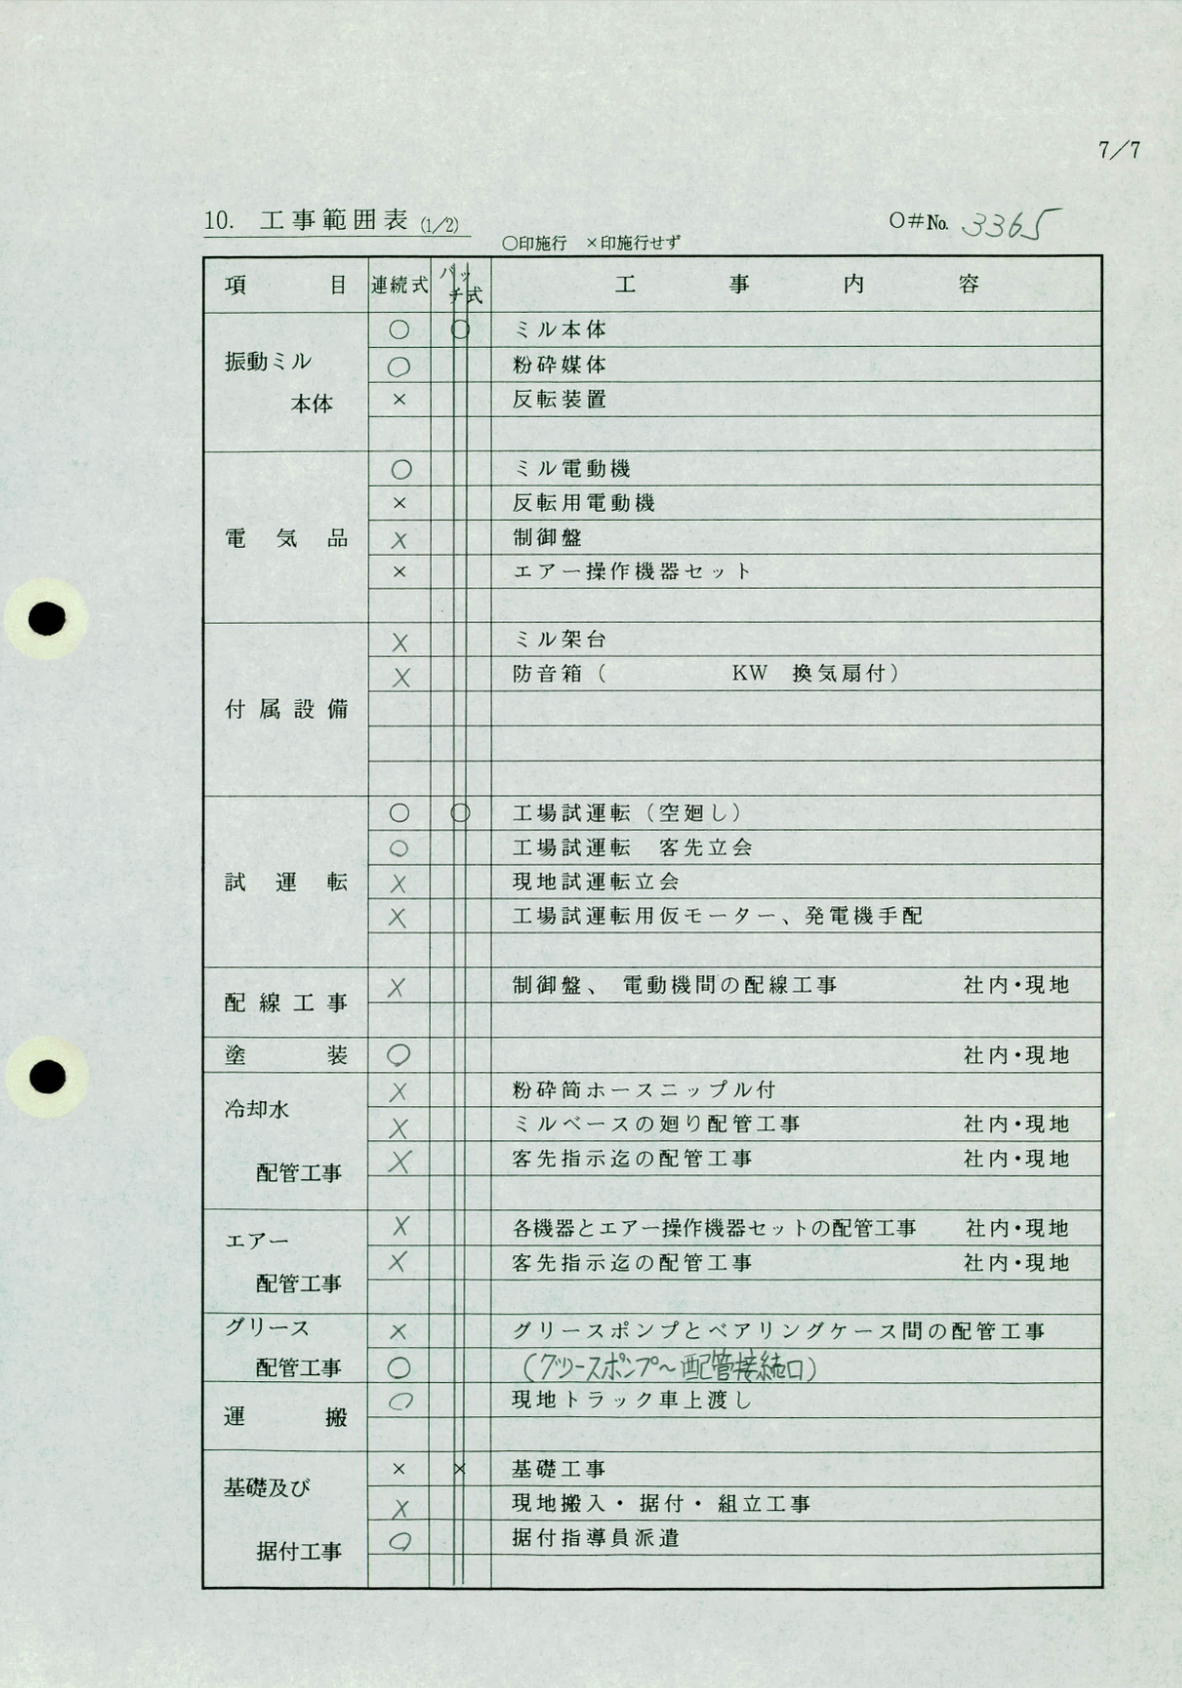 7/7
10. 工事範囲表 (1/2)
O#No. 3365
○印施行 ×印施行せず
項目 連続式 バッチ式 工事内容
振動ミル本体 ○ ○ ミル本体
○ 粉砕媒体
× 反転装置
電気品 ○ ミル電動機
× 反転用電動機
× 制御盤
× エアー操作機器セット
付属設備 × ミル架台
× 防音箱( KW 換気扇付)
試運転 ○ ○ 工場試運転(空廻し)
○ 工場試運転 客先立会
× 現地試運転立会
× 工場試運転用仮モーター、発電機手配
配線工事 × 制御盤、電動機間の配線工事 社内・現地
塗装 ○ 社内・現地
冷却水配管工事 × 粉砕筒ホースニップル付
× ミルベースの廻り配管工事 社内・現地
× 客先指示迄の配管工事 社内・現地
エアー配管工事 × 各機器とエアー操作機器セットの配管工事 社内・現地
× 客先指示迄の配管工事 社内・現地
グリース配管工事 × グリースポンプとベアリングケース間の配管工事
○ (グリースポンプ~配管接続口)
運搬 ○ 現地トラック車上渡し
基礎及び据付工事 × × 基礎工事
× 現地搬入・据付・組立工事
○ 据付指導員派遣